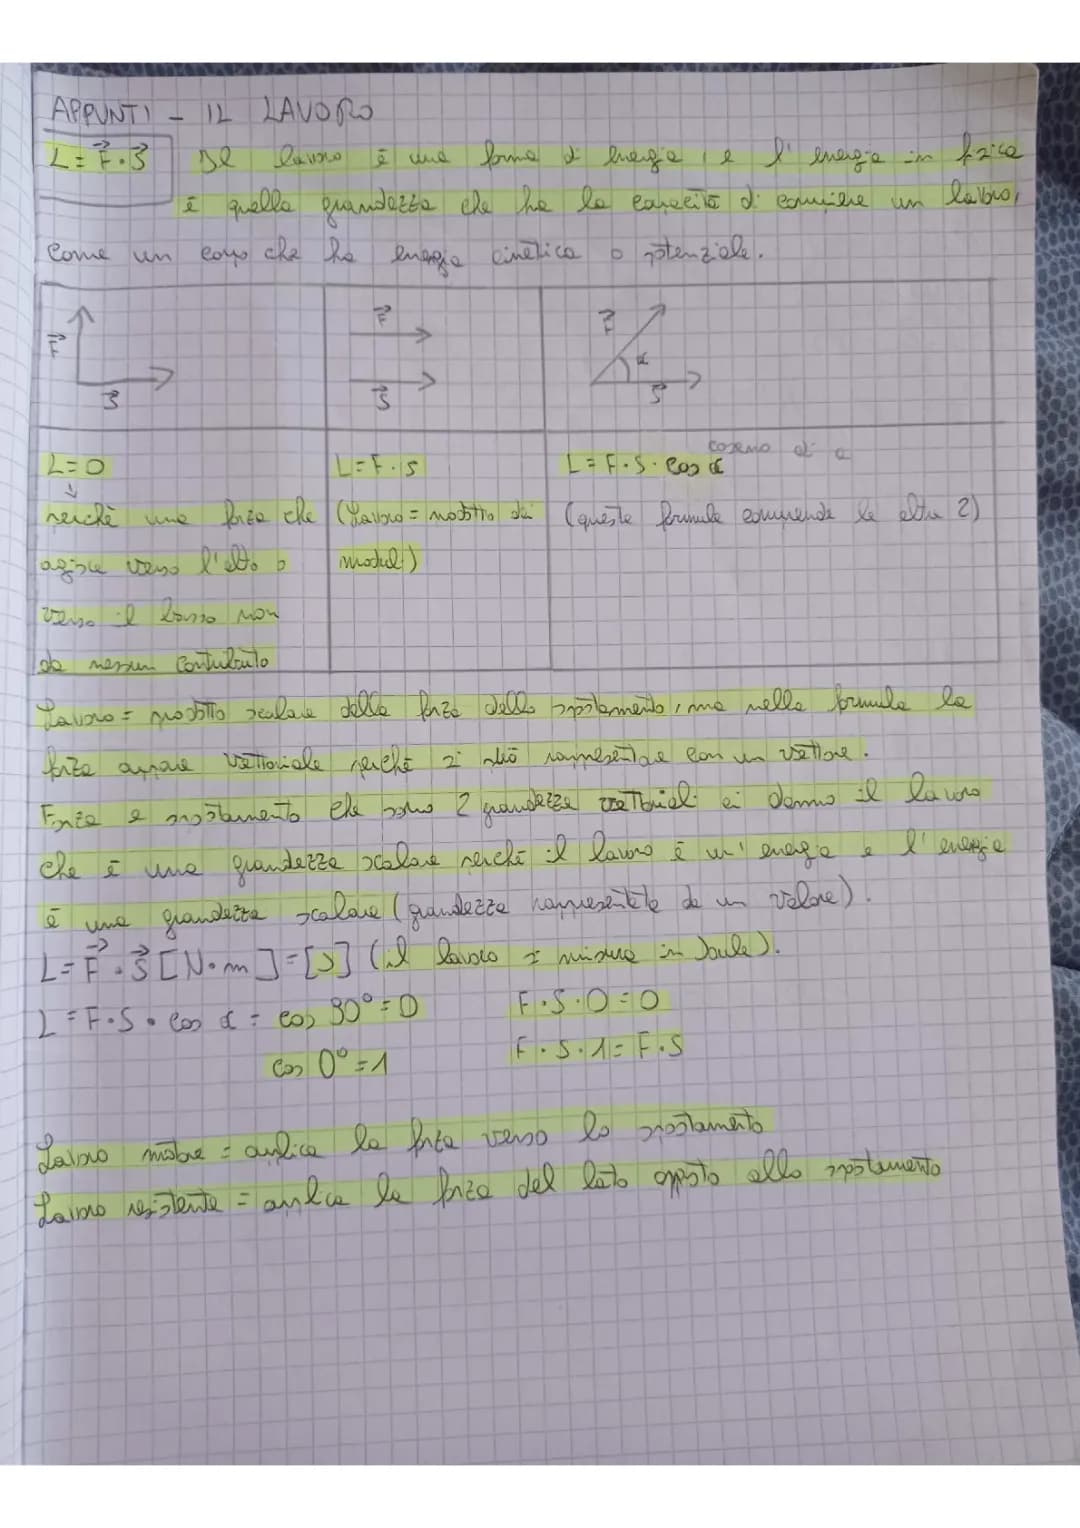 APPUNTI - IL LAVORO
L = F⃗ · S⃗ Il lavoro è una forma di energia, e l'energia in fisica
è quella grandezza che ha la capacità di compiere un lavoro,
come un corpo che ha energia cinetica o potenziale.
F⃗
S⃗
F⃗
S⃗
F⃗
α
S⃗
L=0
↓
perchè una forza che
agisce verso l'alto o
verso il basso non
da nessun contributo
L=F·S
(Lavoro = prodotto dei
moduli)
coseno di α
L = F·S·cos α
(queste formule comprende le altre 2)
Lavoro = prodotto scalare della forza dello spostamento, ma nella formula la
forza appare vettoriale perchè si può rappresentare con un vettore.
Forza e spostamento che sono 2 grandezze vettoriali ci danno il lavoro
che è una grandezza scalare perchè il lavoro è un'energia e l'energia
è una grandezza scalare (grandezza rappresentata da un valore).
L = F⃗ · S⃗ [N·m] = [J] (il lavoro si misura in Joule).
L = F·S·cos α = cos 90° = 0 F·S·0 = 0
cos 0° = 1 F·S·1 = F·S
Lavoro motore = applica la forza verso lo spostamento
Lavoro resistente = applica la forza del lato opposto allo spostamento